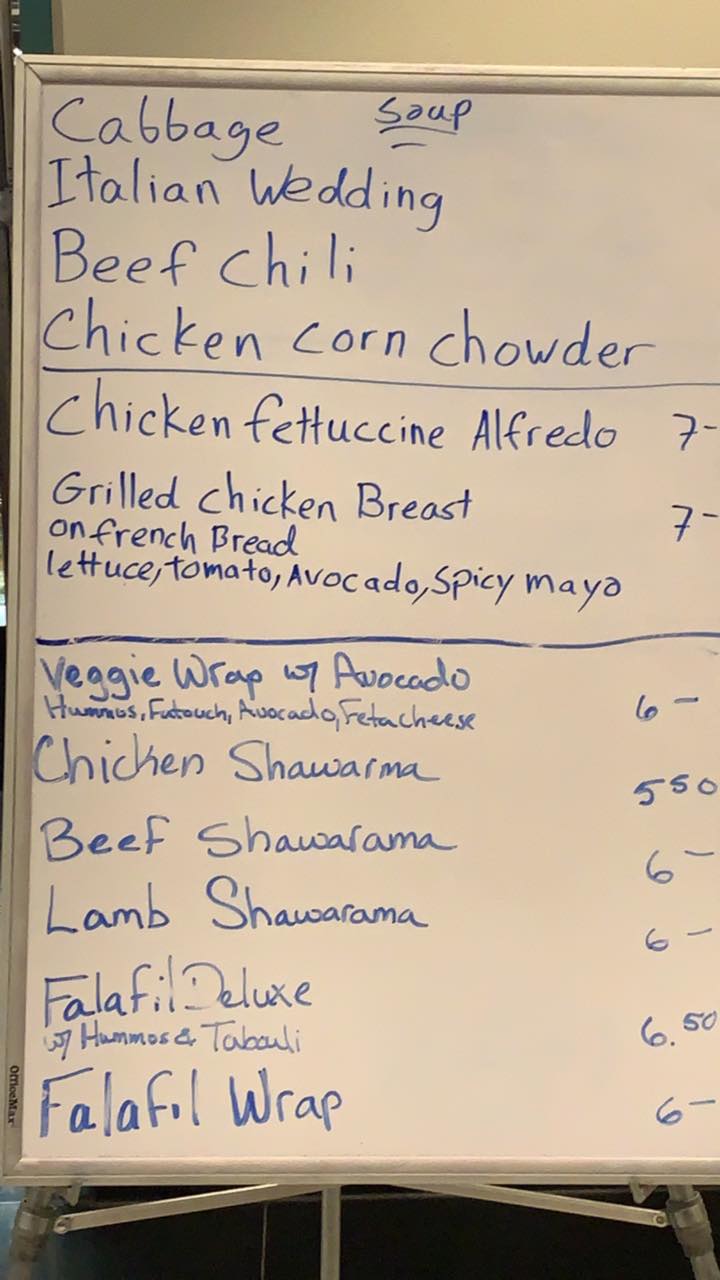 Cabbage Soup
Italian Wedding
Beef Chili
Chicken Corn Chowder
Chicken fettuccine Alfredo 7-
Grilled Chicken Breast 7-
on french Bread
lettuce, tomato, Avocado, Spicy mayo
Veggie Wrap w/ Avocado
Hummos, Futouch, Avocado, Feta cheese 6-
Chicken Shawarma 550
Beef Shawarama 6-
Lamb Shawarama 6-
Falafil Deluxe
w/ Hummos & Tabouli 6.50
Falafil Wrap 6-
OfficeMax